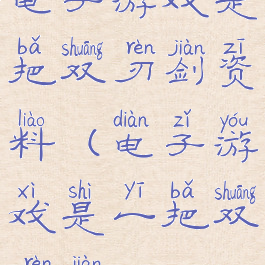 电子游戏是
bǎ shuāng rèn jiàn zī
把双刃剑资
liào diàn zǐ yóu
料(电子游
xì shì yī bǎ shuāng
戏是一把双
rèn jiàn